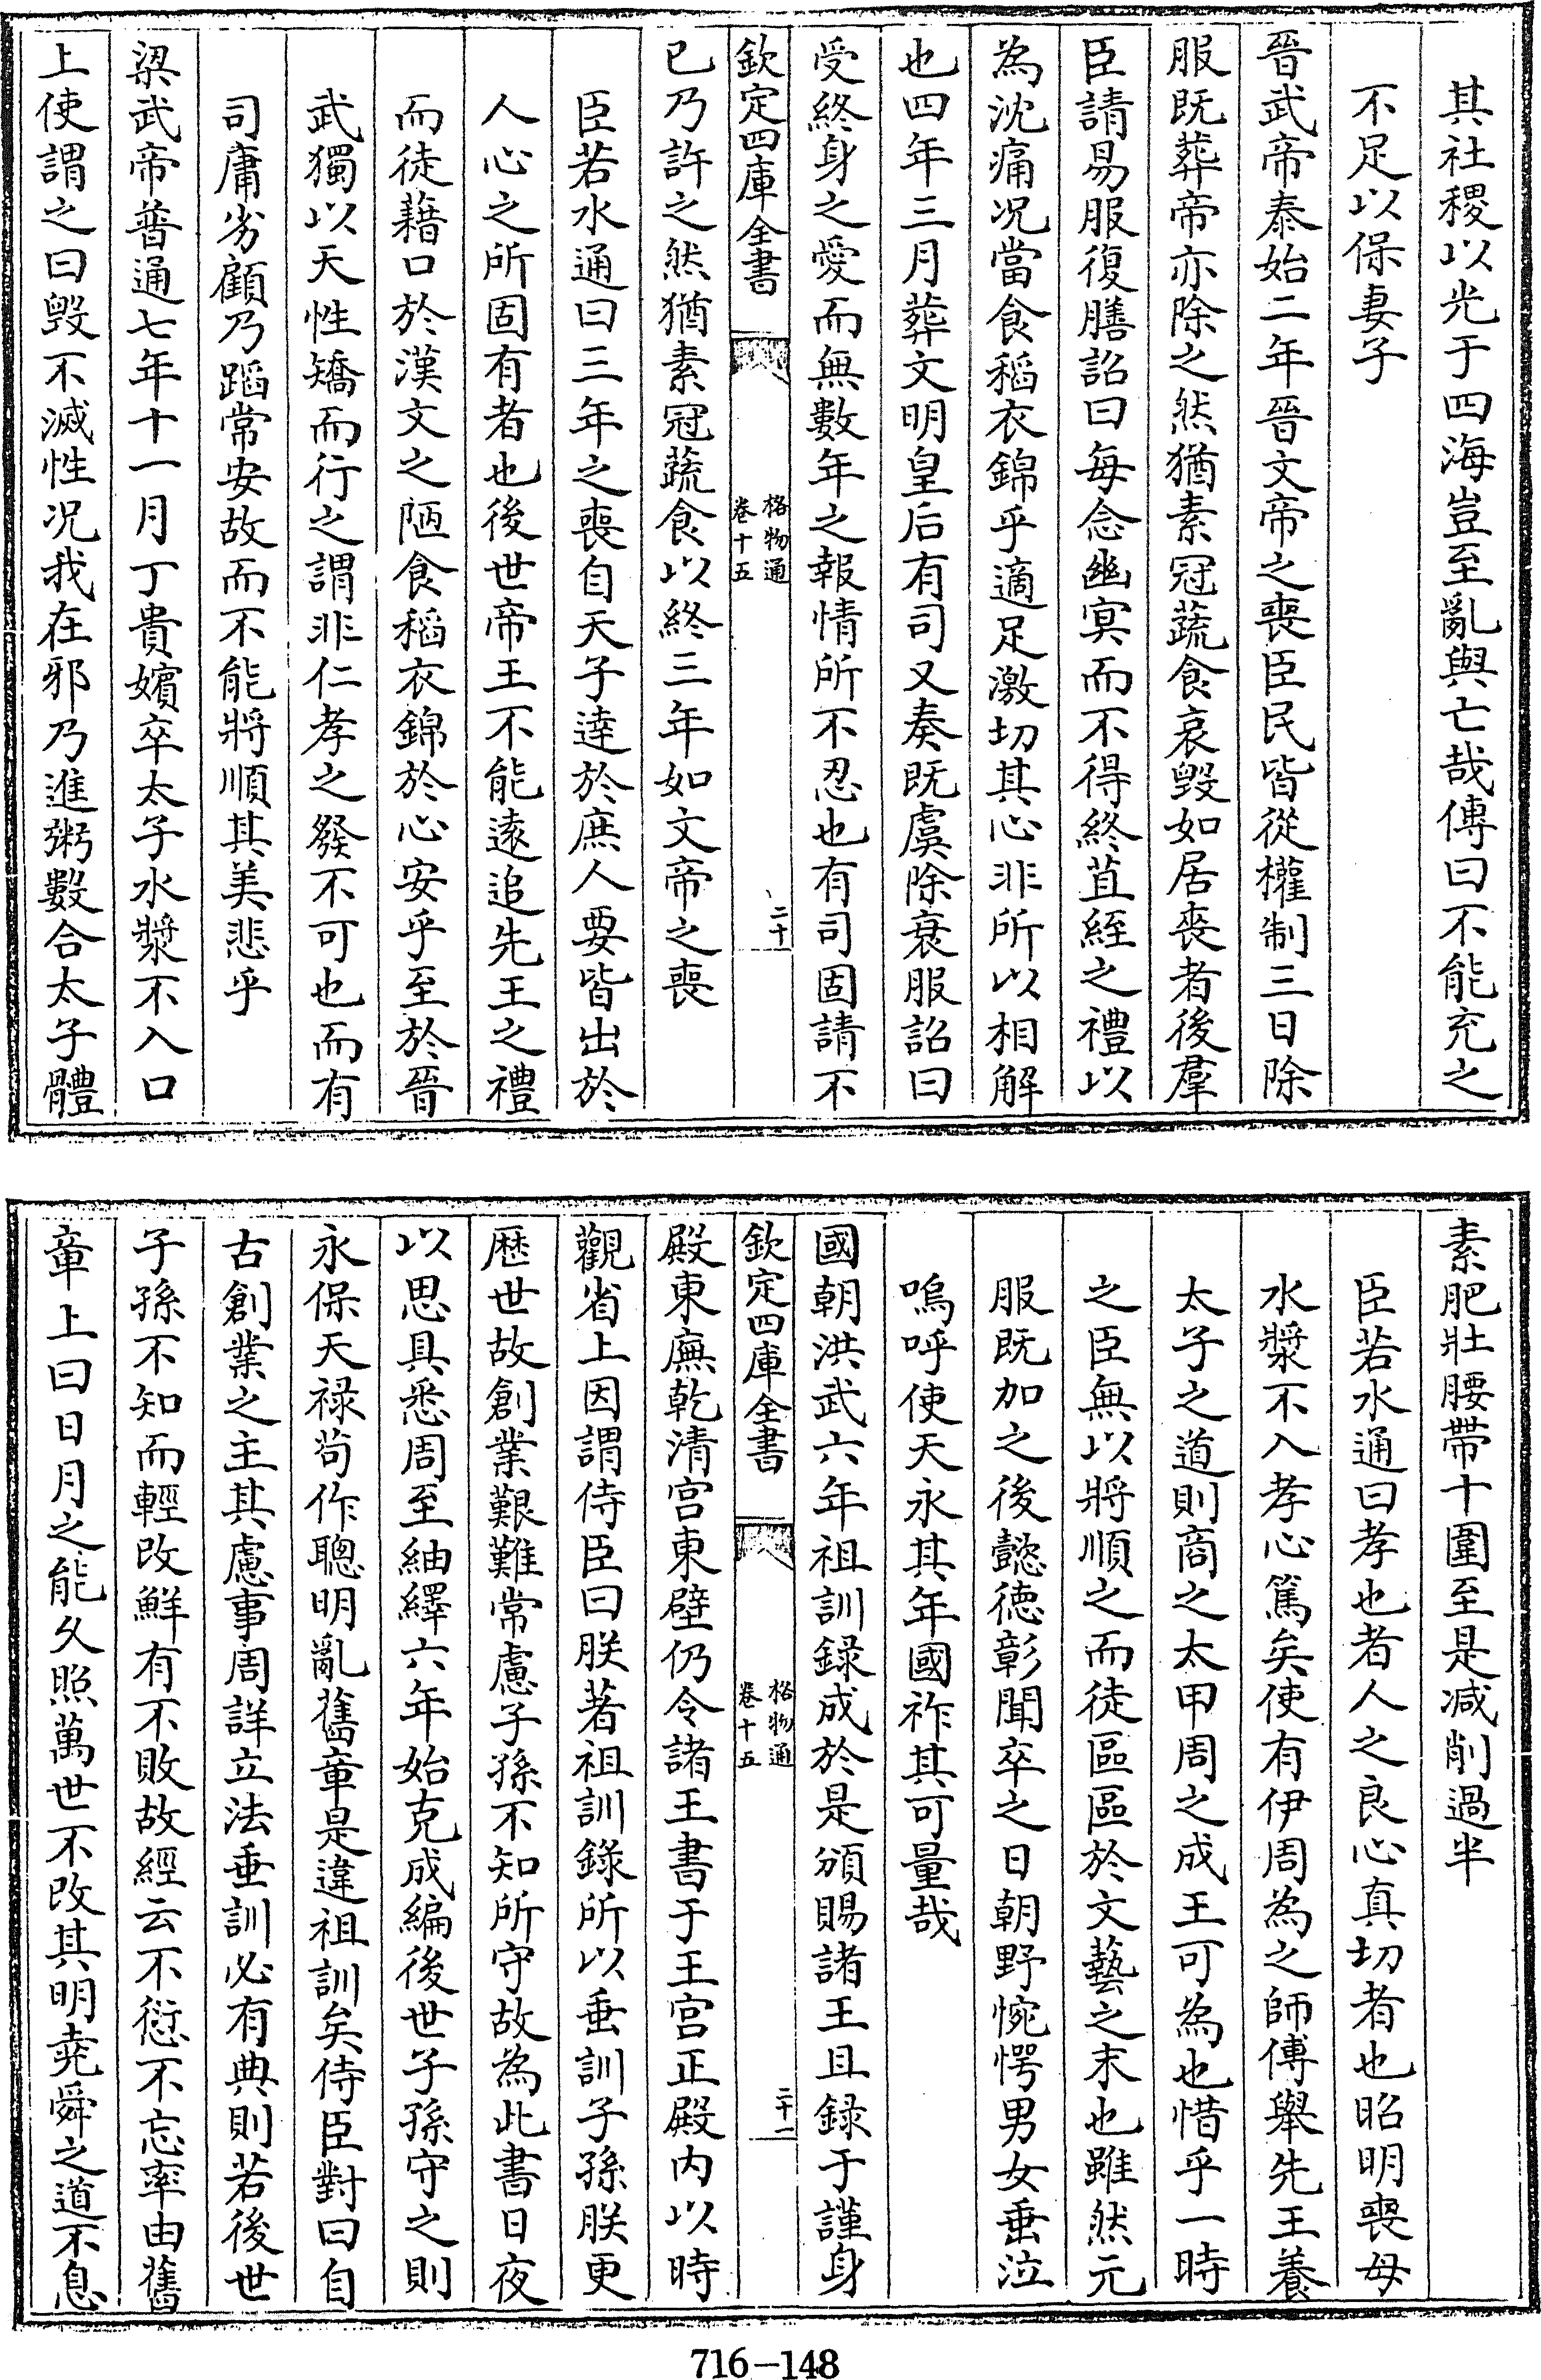 其社稷以光于四海豈至亂與亡哉傳曰不能充之
不足以保妻子
晉武帝泰始二年晉文帝之喪臣民皆從權制三日除
服既葬帝亦除之然猶素冠蔬食哀毀如居喪者後羣
臣請易服復膳詔曰每念幽冥而不得終苴絰之禮以
為沈痛况當食稻衣錦乎適足激切其心非所以相解
也四年三月葬文明皇后有司又奏既虞除衰服詔曰
受終身之愛而無數年之報情所不忍也有司固請不
欽定四庫全書
格物通
卷十五
二十
已乃許之然猶素冠蔬食以終三年如文帝之喪
臣若水通曰三年之喪自天子達於庶人要皆出於
人心之所固有者也後世帝王不能遠追先王之禮
而徒藉口於漢文之陋食稻衣錦於心安乎至於晉
武獨以天性矯而行之謂非仁孝之發不可也而有
司庸劣顧乃蹈常安故而不能將順其美悲乎
梁武帝普通七年十一月丁貴嬪卒太子水漿不入口
上使謂之曰毀不滅性况我在邪乃進粥數合太子體
素肥壯腰帶十圍至是减削過半
臣若水通曰孝也者人之良心真切者也昭明喪母
水漿不入孝心篤矣使有伊周為之師傅舉先王養
太子之道則商之太甲周之成王可為也惜乎一時
之臣無以將順之而徒區區於文藝之末也雖然元
服既加之後懿德彰聞卒之日朝野惋愕男女垂泣
嗚呼使天永其年國祚其可量哉
國朝洪武六年祖訓録成於是頒賜諸王且録于謹身
欽定四庫全書
格物通
卷十五
二十一
殿東廡乾清宮東壁仍令諸王書于王宮正殿内以時
觀省上因謂侍臣曰朕著祖訓錄所以垂訓子孫朕更
歷世故創業艱難常慮子孫不知所守故為此書日夜
以思具悉周至紬繹六年始克成編後世子孫守之則
永保天禄茍作聰明亂舊章是違祖訓矣侍臣對曰自
古創業之主其慮事周詳立法垂訓必有典則若後世
子孫不知而輕改鮮有不敗故經云不愆不忘率由舊
章上曰日月之能久照萬世不改其明堯舜之道不息
716-148